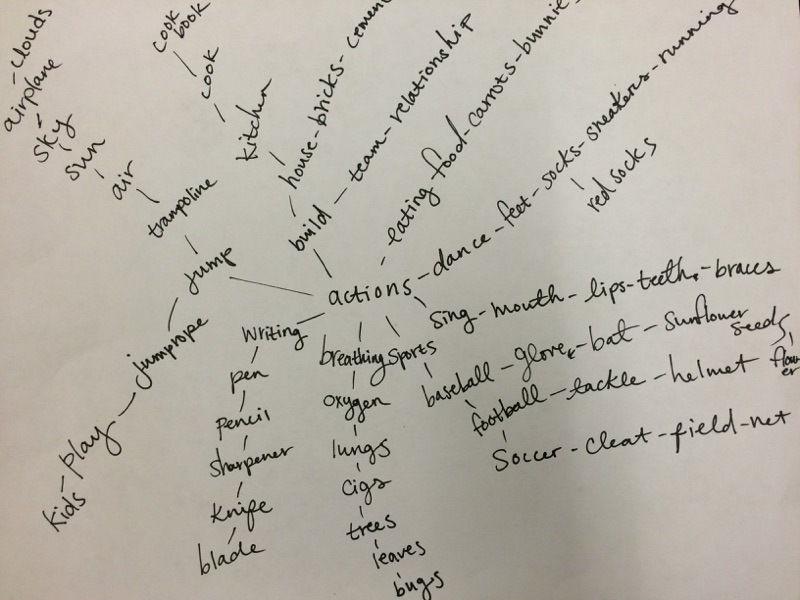 clouds
airplane
sky
sun
air
trampoline
jump
jumprope
play
kids
cook book
cook
kitchen
house - bricks - cement
build - team - relationship
eating food - carrots - bunnies
actions - dance - feet - socks - sneakers - running
red socks
sing - mouth - lips - teeth - braces
sports
baseball - glove - bat - sunflower seeds
flower
football - tackle - helmet
soccer - cleat - field - net
breathing
oxygen
lungs
cigs
trees
leaves
bugs
writing
pen
pencil
sharpener
knife
blade